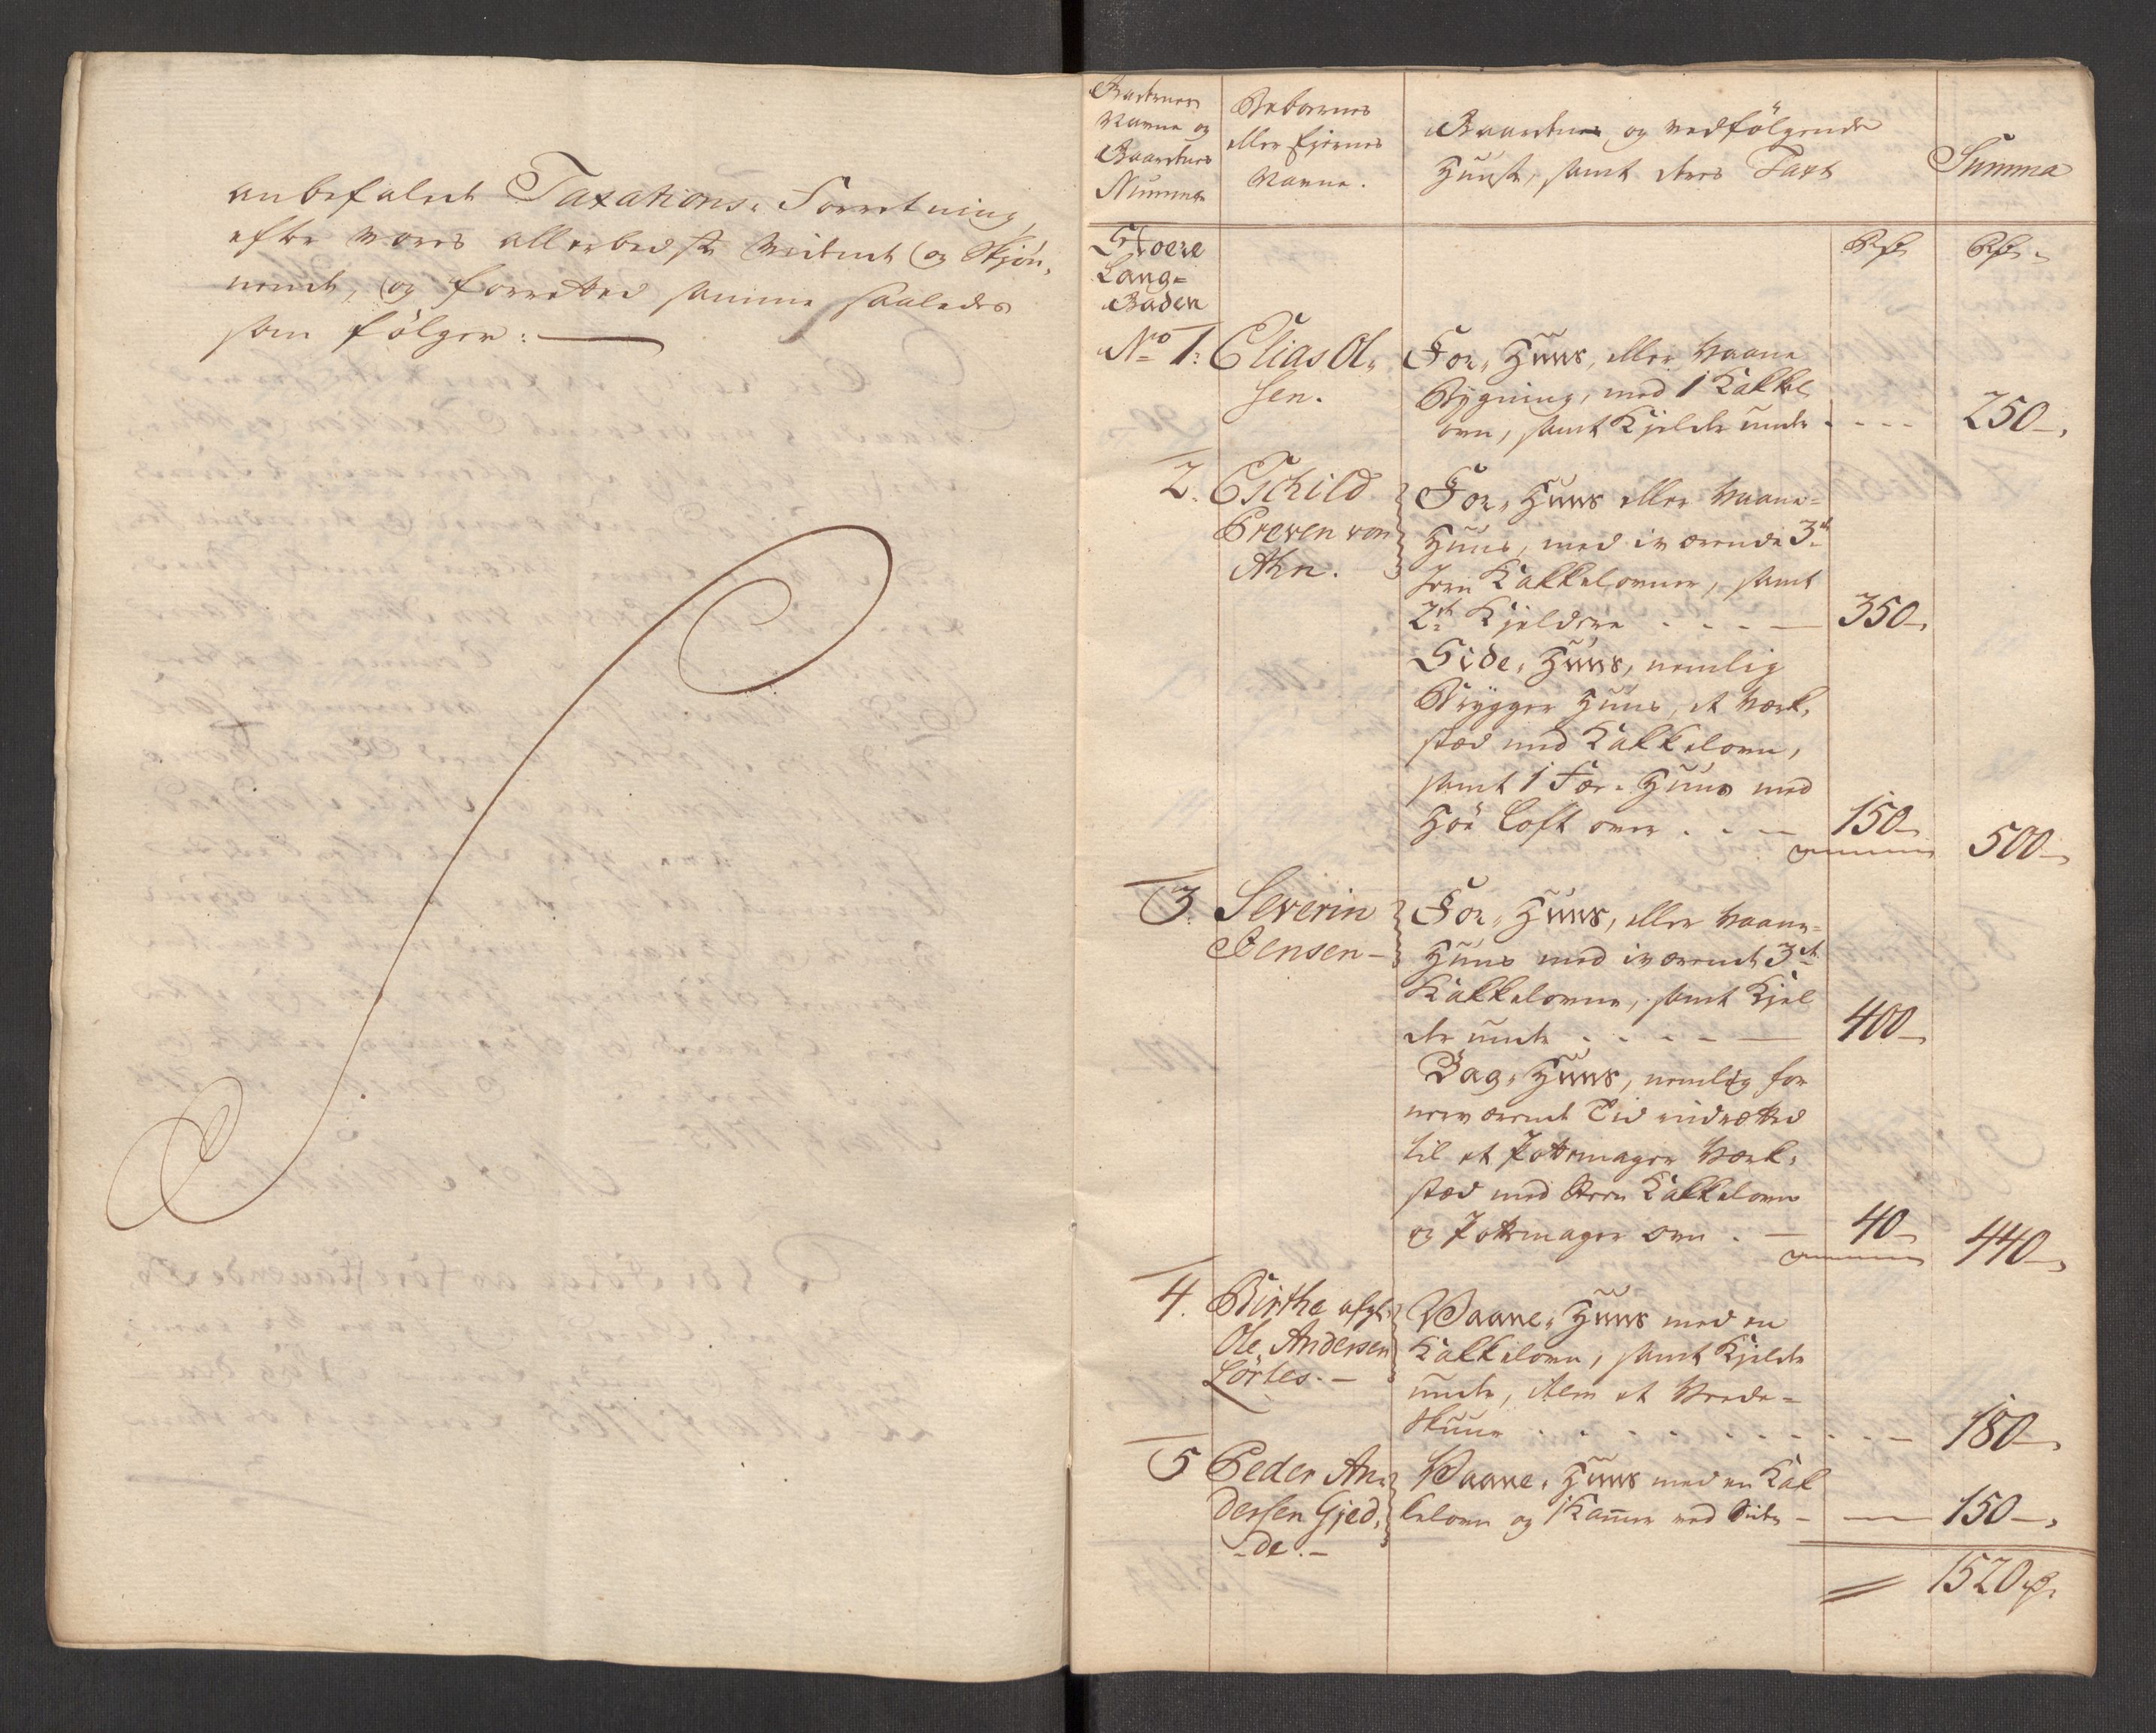 anbefalede Taxations-Forretning,
efter vores allerbedste vidende og Skjön-
nende, og forretted samme saaledes
som følger:
Gadernes
Navne og
Gaardenes
Nummer
Beboernes
eller Ejernes
Navne.
Gaardene og vedfölgende
Huuse, samt deres Taxt
Summa
Stoere
Lang-
Gaden
Rdr
Rdr
No 1.
Elias Ol-
sen.
For-Huus, eller Vaane
Bygning, med 1 Kakkel
ovn, samt Kjelder under
250
2.
Eschild
Preven von
Ahn.
For-Huus eller Vaane-
Huus, med iværende 3de
Jern Kakkelovner, samt
2de Kjeldere
350
Side-Huus, nemlig
Brygger Huus, et Værk-
stæd med Kakkelovn,
samt 1 Fæe-Huus med
Höe Loft over
150
500
3.
Severin
Jensen
For-Huus, eller Vaane-
Huus med iværende 3de
Kakkelovne, samt Kjel
der under
400
Bag-Huus, nemlig for
nærværende Tid indretted
til et Pottemager Værk-
stæd med Steen Kakkelovn
og Pottemager ovn
40
440
4.
Birthe afgl.
Ole Andersen
Lörtes.
Vaane-Huus med en
Kakkelovn, samt Kjelder
under, item et Vede-
Skuur
180
5
Peder An-
dersen Gjed-
de.
Vaane-Huus med en Kak
kelovn og 1 Kammer ved Siden
150
1520 Rdr